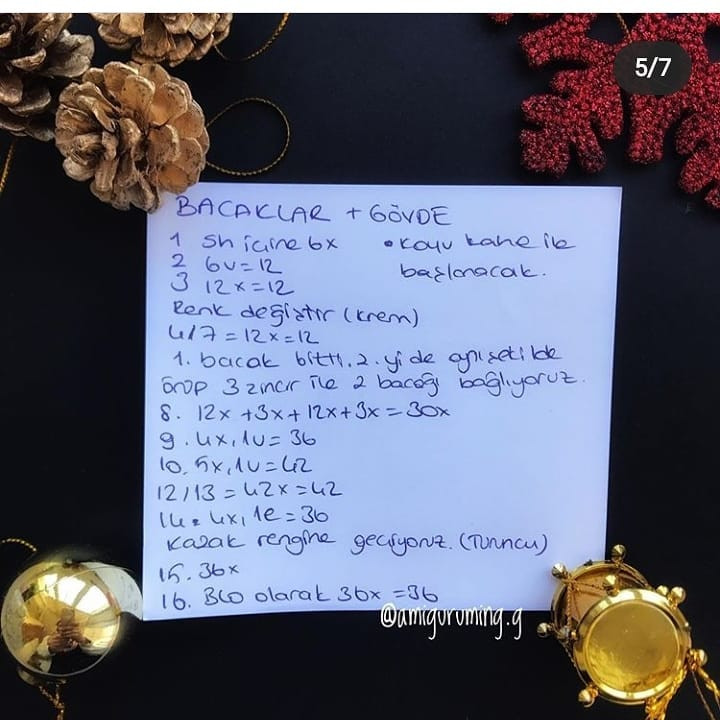 5/7
BACAKLAR + GÖVDE
1 sh içine 6x
• Koyu kahve ile
başlanacak.
2 6v=12
3 12x=12
Renk değiştir (krem)
4/7=12x=12
1. bacak bitti. 2.yi de aynı şekilde
örüp 3 zincir ile 2 bacağı bağlıyoruz.
8. 12x+3x+12x+3x=30x
9. 4x,1v=36
10. 5x,1v=42
12/13=42x=42
14. 4x,1e=36
Kazak rengine geçiyoruz. (Turuncu)
15. 36x
16. BLO olarak 36x=36
@amiguruming.g